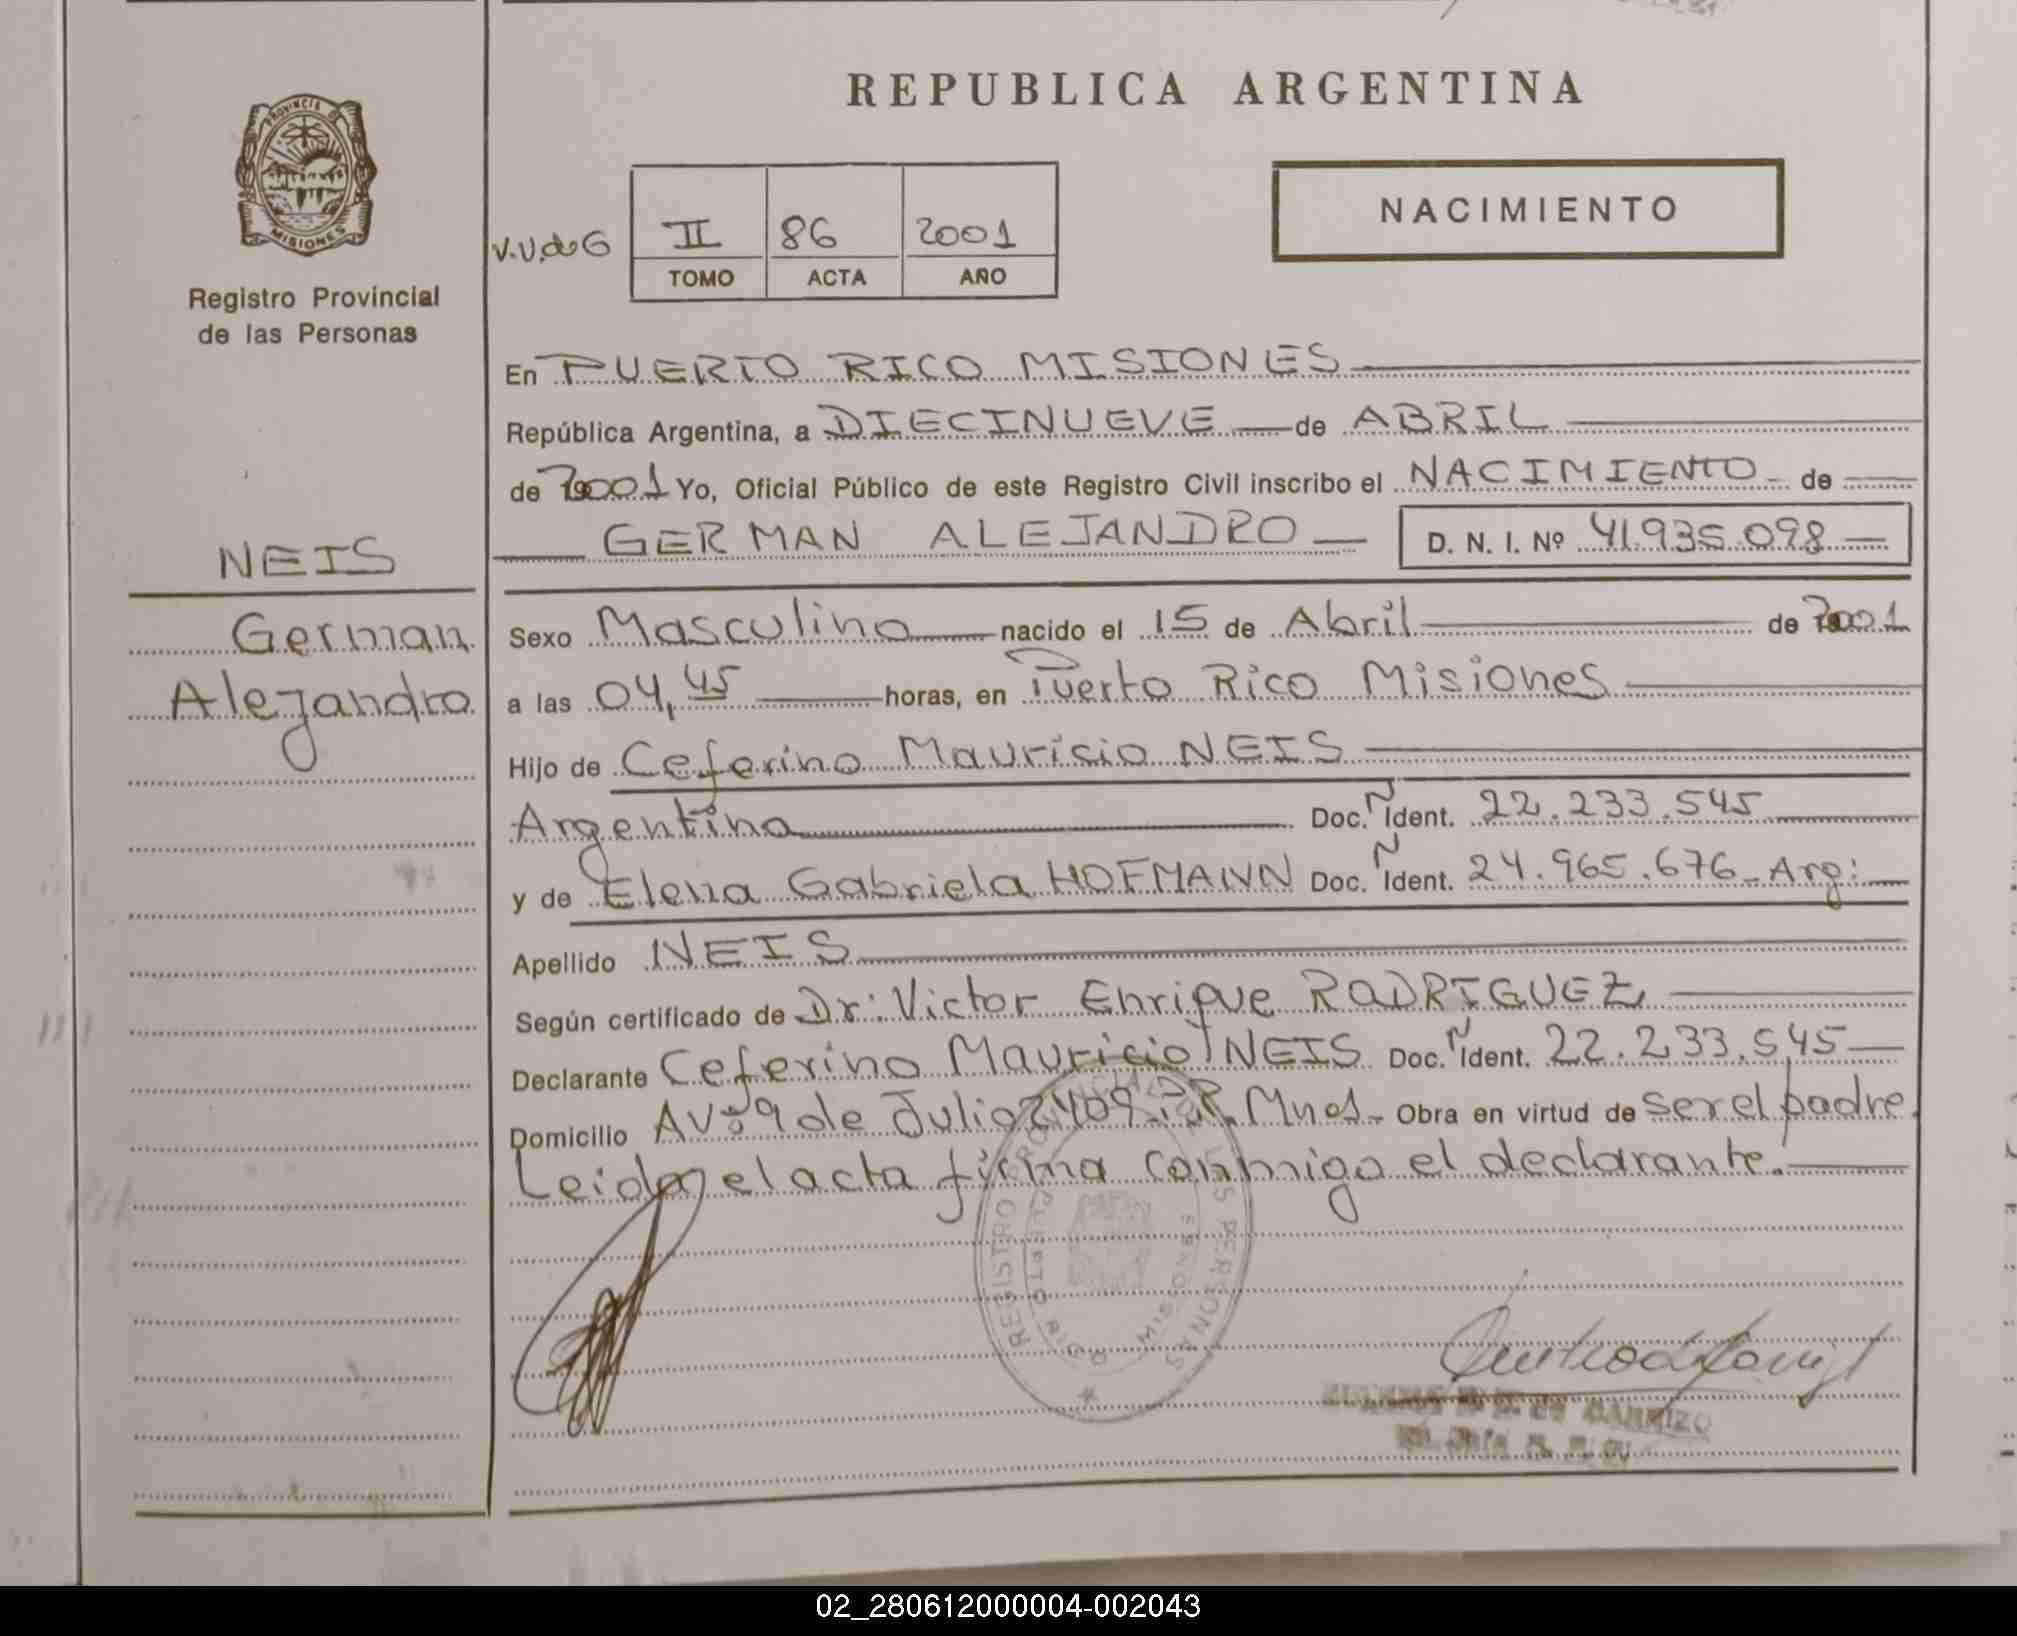 REPUBLICA ARGENTINA
PROVINCIA DE
MISIONES
Registro Provincial
de las Personas
V.U.de G
II 86 2001
TOMO ACTA AÑO
NACIMIENTO
En PUERTO RICO MISIONES
República Argentina, a DIECINUEVE de ABRIL
de 2001 Yo, Oficial Público de este Registro Civil inscribo el NACIMIENTO de
GERMAN ALEJANDRO D. N. I. Nº 41.935.098
NEIS
German
Alejandro
Sexo Masculino nacido el 15 de Abril de 2001
a las 04,45 horas, en Puerto Rico Misiones
Hijo de Ceferino Mauricio NEIS
Argentino Doc. Ñ Ident. 22.233.545
y de Elena Gabriela HOFMANN Doc. Ñ Ident. 24.965.676 Arg:
Apellido NEIS
Según certificado de Dr: Victor Enrique RODRIGUEZ
Declarante Ceferino Mauricio NEIS Doc. Ñ Ident. 22.233.545
Domicilio Av: 9 de Julio 2409 P.R. Mnes. Obra en virtud de ser el padre.
Leida el acta firma conmigo el declarante.
REGISTRO PROVINCIAL DE LAS PERSONAS
PUERTO RICO MISIONES
DE CARRIZO
02_280612000004-002043